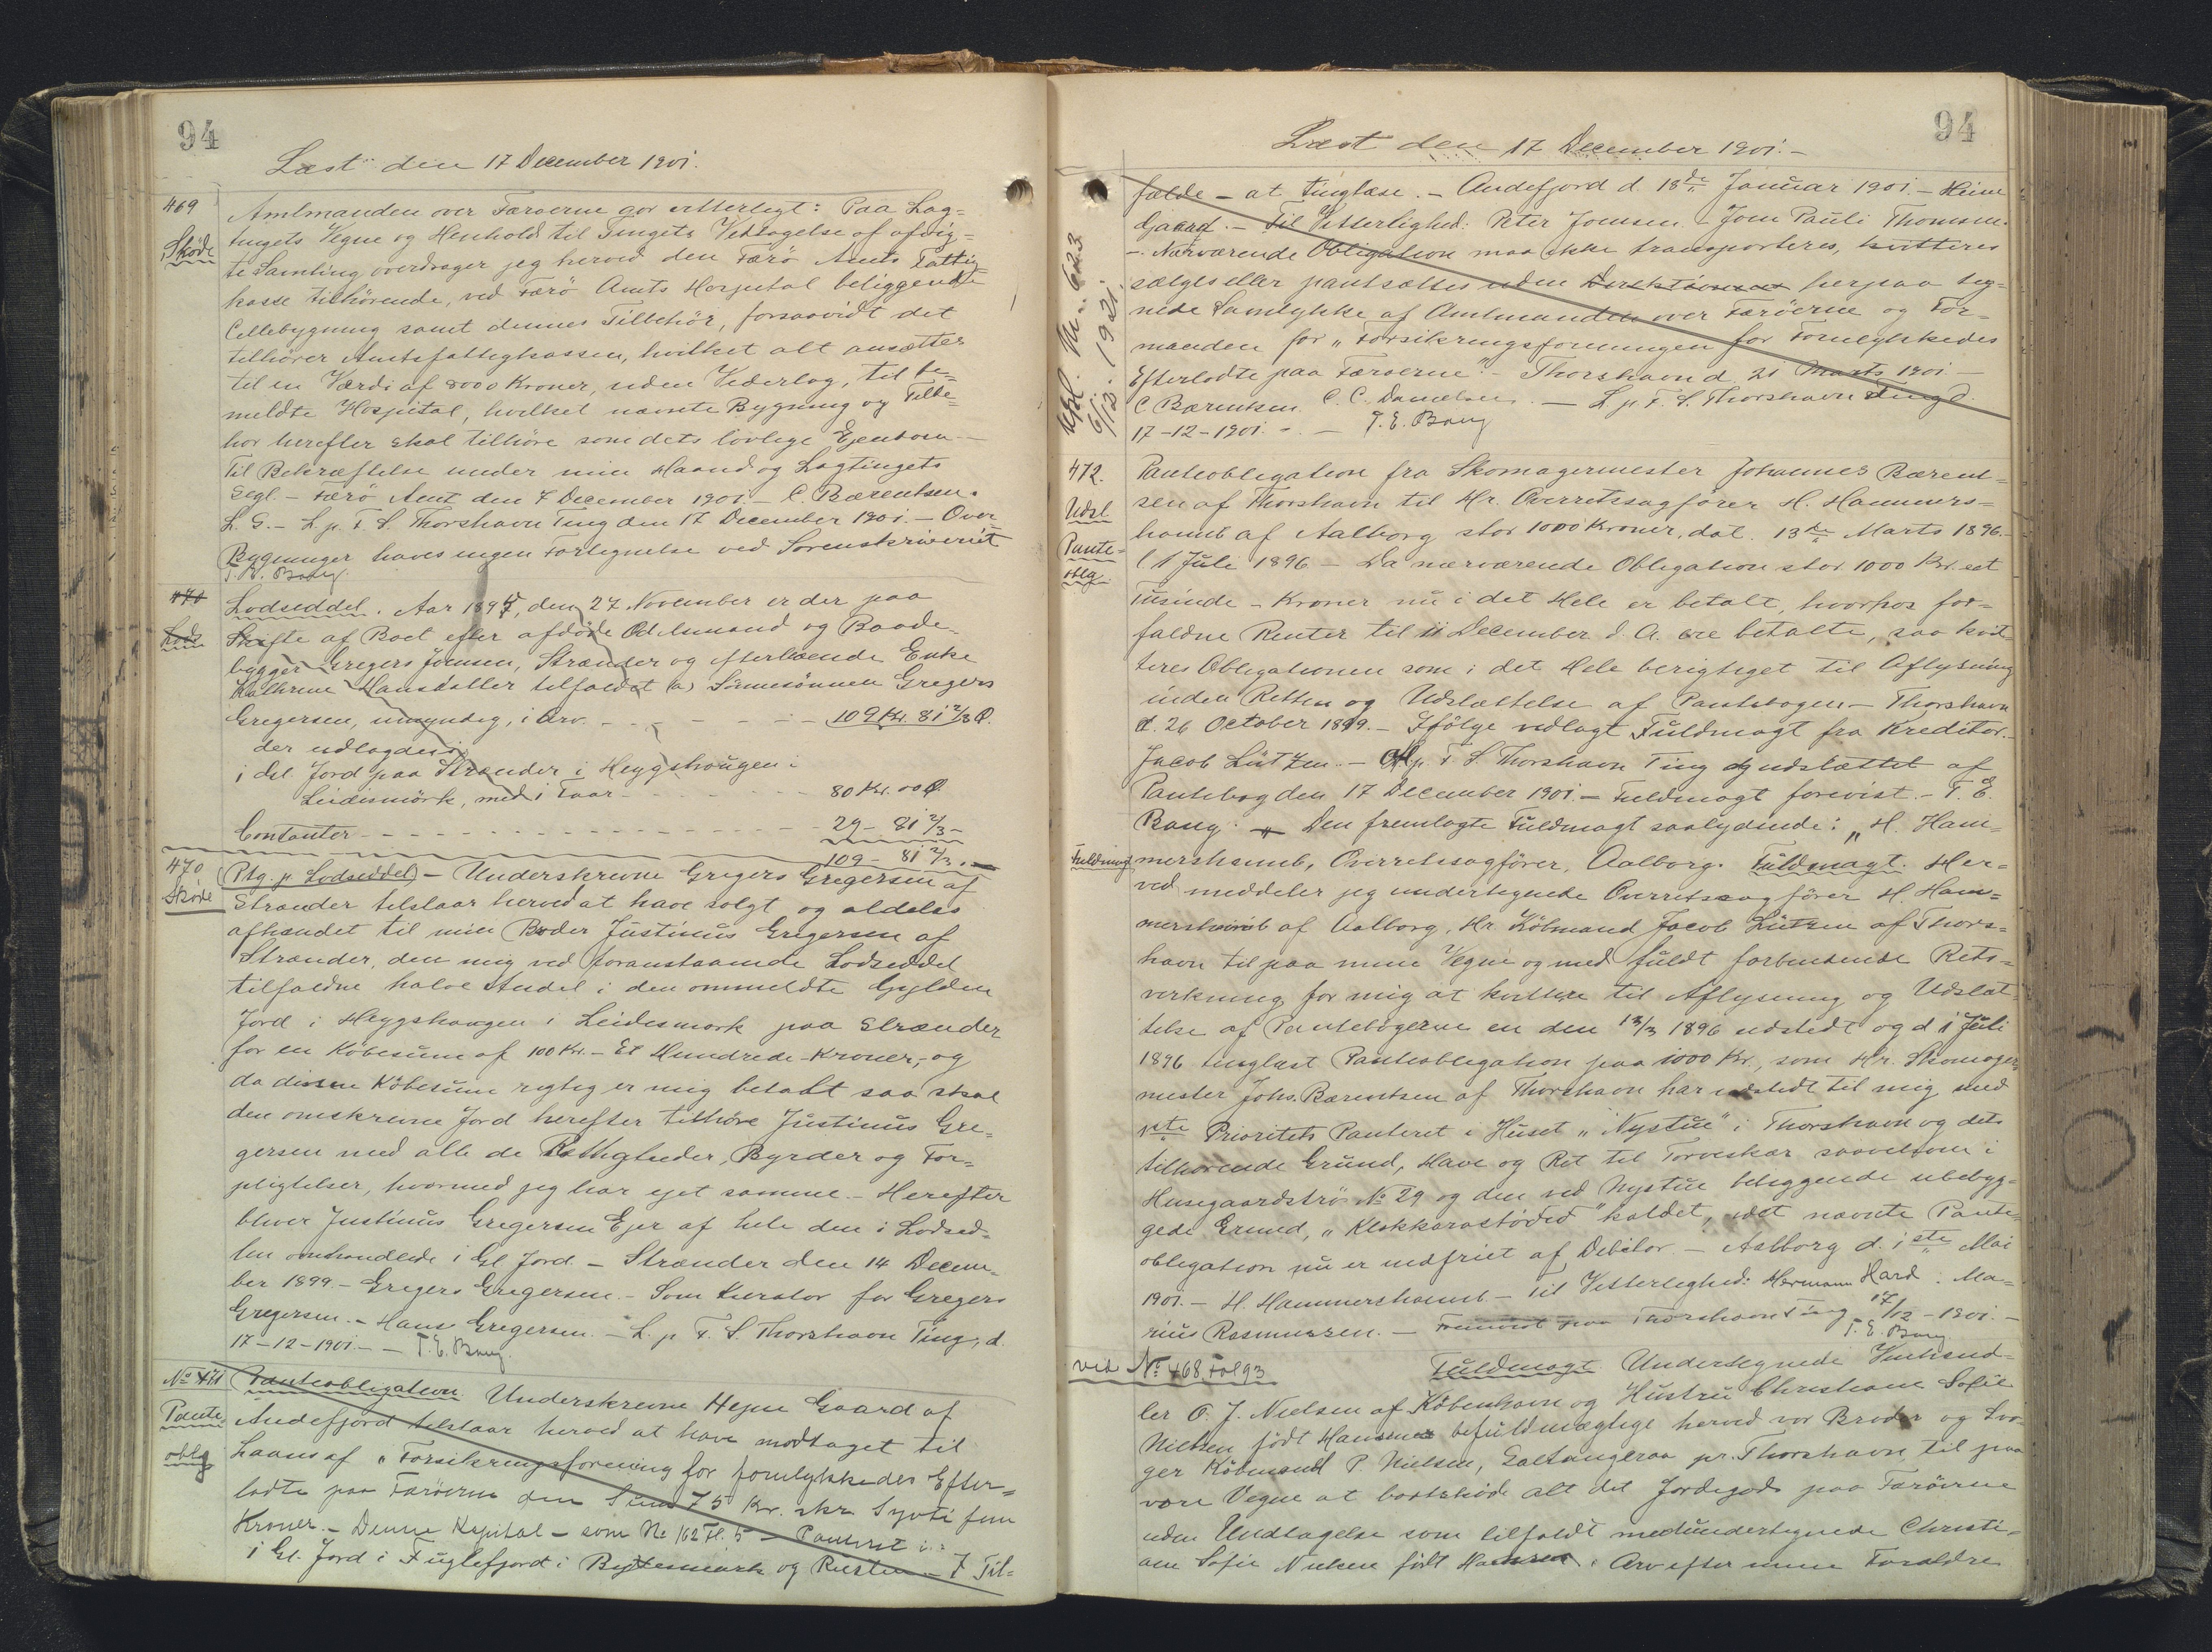 94
Læst den 17 December 1901.
469
Skøde
Amtmanden over Færøerne gør vitterligt: Paa Lag=
tingets Vegne og Henhold til Tingets Vedtagelse af afvig=
te Samling overdrager jeg herved den Færø Amts Fattig=
kasse tilhørende, ved Færø Amts Hospital beliggende
Cellebygning samt dennes Tilbehør, forsaavidt det
tilhører Amtsfattigkassen, hvilket alt ansættes
til en Værdi af 8000 Kroner, uden Vederlag, til be=
meldte Hospital, hvilket nævnte Bygning og Tilbe=
hør herefter skal tilhøre som dets lovlige Ejendom. —
Til Bekræftelse under min Haand og Lagtingets
Segl. — Færø Amt den 7 December 1901. — C. Bærentsen.
L. S. — L. p. F. S. Thorshavn Ting den 17 December 1901. — Over
Bygninger haves ingen Fortegnelse ved Sorenskriveriet
T. E. Bang.
470
Lods
Lodseddel. Aar 1897, den 27 November er der paa
Skifte af Boet efter afdøde Odelsmand og Baade=
bygger Gregers Joensen, Strænder og efterlevende Enke
Kathrine Hansdatter tilfaldet a) Sønnesønnen Gregers
Gregersen, umyndig, i Arv. - - - - - - 109 Kr. 81 2/3 Ø.
der udlagdes:
i del Jord paa Strænder i Heygshougen i
Leidismörk, med i Faar - - - - - - 80 Kr. 00 Ø.
Contanter - - - - - - - - - - 29 - 81 2/3 -
109 - 81 2/3. -
470
Skøde
(Ptg. p. Lodseddel) - Underskrevne Gregers Gregersen af
Strænder tilstaar herved at have solgt og aldeles
afhændet til min Broder Justinus Gregersen af
Strænder, den mig ved foranstaaende Lodseddel
tilfaldne halve Andel i den ommeldte Gylden
Jord i Heygshaugen i Leidesmørk paa Strænder
for en Købesum af 100 Kr. - Et Hundrede - Kroner, - og
da denne Købesum rigtig er mig betalt saa skal
den omskrevne Jord herefter tilhøre Justinus Gre=
gersen med alle de Rettigheder, Byrder og For=
pligtelser, hvormed jeg har ejet samme. - Herefter
bliver Justinus Gregersen Ejer af hele den i Lodsed=
len omhandlede i Gl Jord. - Strænder den 14 Decem=
ber 1899. - Gregers Gregersen. - Som Kurator for Gregers
Gregersen. - Hans Gregersen. - L. p. F. S. Thorshavn Ting, d.
17-12-1901. - - T. E. Bang.
No 471
Pante
oblg
Panteobligation. Underskrevne Hejne Gaard af
Andefjord tilstaar herved at have modtaget til
Laans af "Forsikringsforening for forulykkedes Efter=
ladte paa Færøerne den Sum 75 Kr. skr. Syvti fem
Kroner. - Denne Kapital - som No 162 Fl. 5 - Panteret i :
i Gl. Jord i Fuglefjord i Bydesmark og Rusten - 7 Til=
94
Læst den 17 December 1901. -
Udsl. No. 623
6/12. 1921.
fælde - at tinglæse. - Andefjord d. 18de Januar 1901. - Heine
Gaard. - Til Vitterlighed: Peter Joensen - Joen Pauli Thomsen.
-. Nærværende Obligation maa ikke transporteres, kvitteres
sælges eller pantsættes uden Direktionens herpaa teg=
nede Samtykke af Amtmanden over Færøerne og For=
manden for "Forsikringsforeningen for Forulykkedes
Efterladte paa Færøerne". - Thorshavn d. 21 Marts 1901 -
C Bærentsen. C. C. Danielsen. - L p. F. S. Thorshavn Ting d.
17-12-1901. - - T. E. Bang
472.
Udsl.
Pante=
oblg.
Panteobligation fra Skomagermester Johannes Bærent=
sen af Thorshavn til Hr. Overretssagfører H. Hammers=
haimb af Aalborg stor 1000 Kroner, dat. 13de Marts 1896. -
l 1 Juli 1896 - Da nærværende Obligation stor 1000 Kr. eet
Tusinde - Kroner nu i det Hele er betalt, hvorhos for=
faldne Renter til 11 December d. A. ere betalte, saa kvit
teres Obligationen som i det Hele berigtiget til Aflysning
inden Retten og Udslettelse af Pantebogen. - Thorshavn
d. 26 October 1899. - Ifølge vedlagt Fuldmagt fra Kreditor. -
Jacob Lützen. - Al p. F. S. Thorshavn Ting og udslettet af
Pantebog den 17 December 1901. - Fuldmagt forevist. - T. E.
Bang. - Den fremlagte Fuldmagt saalydende: "H. Ham=
Fuldmagt
mershaimb, Overretssagfører, Aalborg. Fuldmagt. Her=
ved meddeler jeg undertegnede Overretssagfører H. Ham=
mershaimb af Aalborg, Hr. Købmand Jacob Lützen af Thors=
havn til paa mine Vegne og med fuldt forbindende Rets=
virkning for mig at kvittere til Aflysning og Udslet
telse af Pantebøgerne en den 13/3 1896 udstedt og d. 1 Juli
1896 tinglæst Panteobligation paa 1000 Kr., som Hr. Skomager=
mester Johs. Bærentsen af Thorshavn har udstedt til mig med
1ste Prioritets Panteret i Huset "Nystue" i Thorshavn og dets
tilhørende Grund, Have og Ret til Torveskær saavelsom i
Husegaardstrø No 29 og den ved Nystue beliggende ubebyg=
gede Grund, "Klokkarastødid" kaldet, idet nævnte Pante=
obligation nu er indfriet af Debitor - Aalborg d. 1ste Mai
1901. - H. Hammershaimb - Til Vitterlighed: Hermann Hard. Ma=
rius Rasmussen. - Fremvist paa Thorshavn Ting 17/12 - 1901. -
T. E. Bang
ved No 468 Fol 93
Fuldmagt. Undertegnede Vinhand=
ler O. J. Nielsen af København og Hustru Christiane Sofie
Nielsen født Hansen befuldmægtige herved vor Broder og Svo-
ger Købmand P Nielsen, Saltangeraa pr. Thorshavn, til paa
vore Vegne at bortskøde alt det Jordegods paa Færøerne
uden Undtagelse som tilfaldt medundertegnede Christi=
ane Sofie Nielsen født Hansen i Arv efter mine Forældre